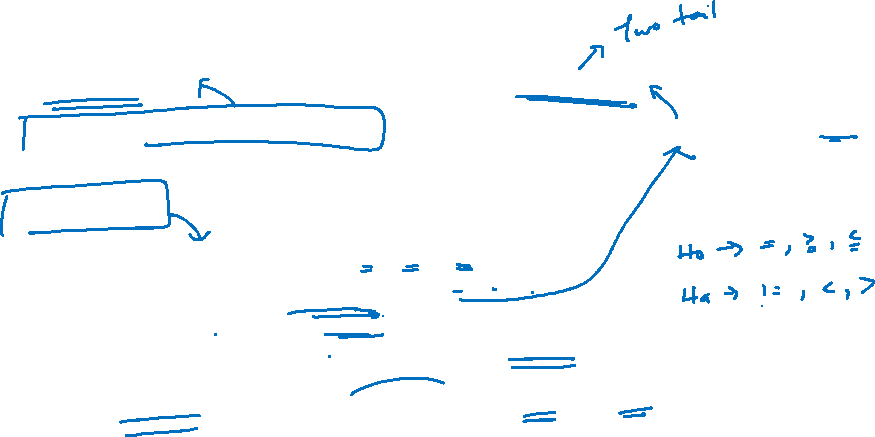 Two tail
Ho → =, ≥, ≤
Ha → !=, <, >